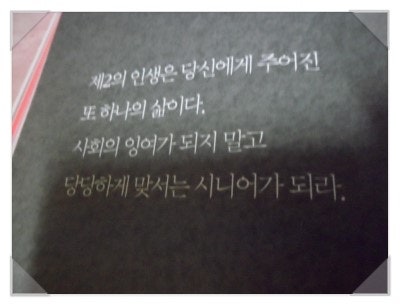 제2의 인생은 당신에게 주어진
또 하나의 삶이다.
사회의 잉여가 되지 말고
당당하게 맞서는 시니어가 되라.